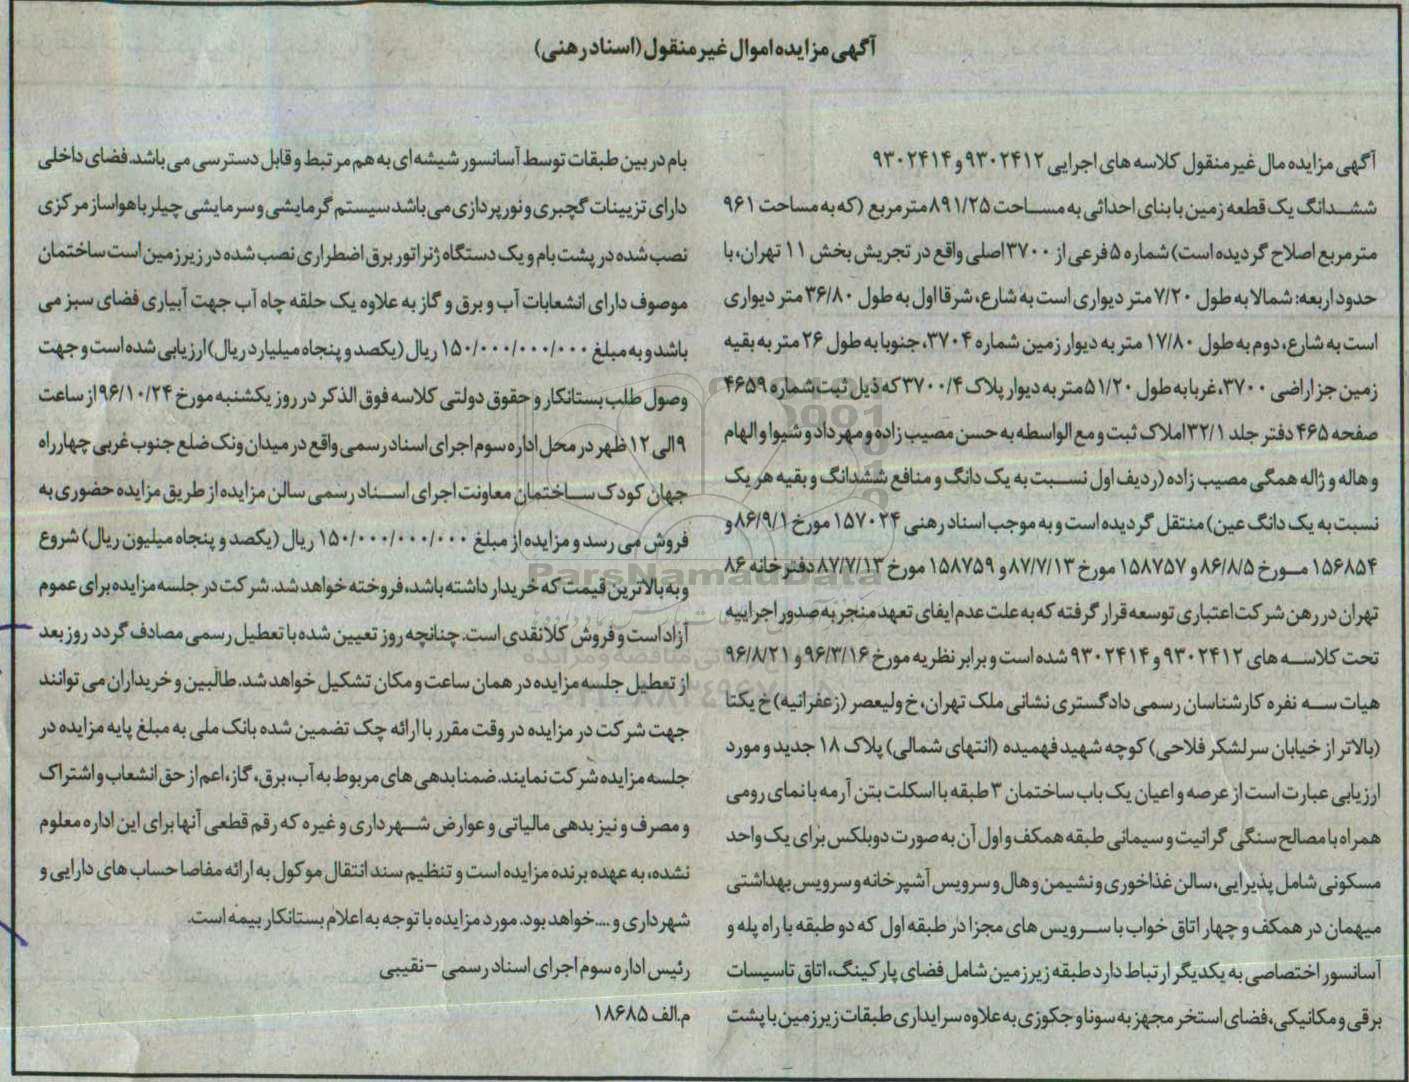 آگهی مزایده اموال غیرمنقول (اسناد رهنی)
آگهی مزایده مال غیرمنقول کلاسه های اجرایی ۹۳۰۲۴۱۲ و ۹۳۰۲۴۱۴
ششدانگ یک قطعه زمین با بنای احداثی به مساحت ۸۹۱/۲۵ مترمربع (که به مساحت ۹۶۱
مترمربع اصلاح گردیده است) شماره ۵ فرعی از ۳۷۰۰ اصلی واقع در تجریش بخش ۱۱ تهران، با
حدود اربعه: شمالا به طول ۷/۲۰ متر دیواری است به شارع، شرقا اول به طول ۳۶/۸۰ متر دیواری
است به شارع، دوم به طول ۱۷/۸۰ متر به دیوار زمین شماره ۳۷۰۴، جنوبا به طول ۲۶ متر به بقیه
زمین جز اراضی ۳۷۰۰، غربا به طول ۵۱/۲۰ متر به دیوار پلاک ۳۷۰۰/۴ که ذیل ثبت شماره ۴۶۵۹
صفحه ۴۶۵ دفتر جلد ۳۲/۱ املاک ثبت و مع الواسطه به حسن مصیب زاده و مهرداد و شیوا و الهام
و هاله و ژاله همگی مصیب زاده (ردیف اول نسبت به یک دانگ و منافع ششدانگ و بقیه هر یک
نسبت به یک دانگ عین) منتقل گردیده است و به موجب اسناد رهنی ۱۵۷۰۲۴ مورخ ۸۶/۹/۱ و
۱۵۶۸۵۴ مورخ ۸۶/۸/۵ و ۱۵۸۷۵۷ مورخ ۸۷/۷/۱۳ و ۱۵۸۷۵۹ مورخ ۸۷/۷/۱۳ دفترخانه ۸۶
تهران در رهن شرکت اعتباری توسعه قرار گرفته که به علت عدم ایفای تعهد منجر به صدور اجراییه
تحت کلاسه های ۹۳۰۲۴۱۲ و ۹۳۰۲۴۱۴ شده است و برابر نظریه مورخ ۹۶/۳/۱۶ و ۹۶/۸/۲۱
هیات سه نفره کارشناسان رسمی دادگستری نشانی ملک تهران، خ ولیعصر (زعفرانیه) خ یکتا
(بالاتر از خیابان سرلشکر فلاحی) کوچه شهید فهمیده (انتهای شمالی) پلاک ۱۸ جدید و مورد
ارزیابی عبارت است از عرصه و اعیان یک باب ساختمان ۳ طبقه با اسکلت بتن آرمه با نمای رومی
همراه با مصالح سنگی گرانیت و سیمانی طبقه همکف و اول آن به صورت دوبلکس برای یک واحد
مسکونی شامل پذیرایی، سالن غذاخوری و نشیمن و هال و سرویس آشپرخانه و سرویس بهداشتی
میهمان در همکف و چهار اتاق خواب با سرویس های مجزا در طبقه اول که دو طبقه با راه پله و
آسانسور اختصاصی به یکدیگر ارتباط دارد طبقه زیرزمین شامل فضای پارکینگ، اتاق تاسیسات
برقی و مکانیکی، فضای استخر مجهز به سونا و جکوزی به علاوه سرایداری طبقات زیرزمین با پشت
بام در بین طبقات توسط آسانسور شیشه ای به هم مرتبط و قابل دسترسی می باشد. فضای داخلی
دارای تزیینات گچبری و نورپردازی می باشد سیستم گرمایشی و سرمایشی چیلر با هواساز مرکزی
نصب شده در پشت بام و یک دستگاه ژنراتور برق اضطراری نصب شده در زیرزمین است ساختمان
موصوف دارای انشعابات آب و برق و گاز به علاوه یک حلقه چاه آب جهت آبیاری فضای سبز می
باشد و به مبلغ ۱۵۰/۰۰۰/۰۰۰/۰۰۰ ریال (یکصد و پنجاه میلیارد ریال) ارزیابی شده است و جهت
وصول طلب بستانکار و حقوق دولتی کلاسه فوق الذکر در روز یکشنبه مورخ ۹۶/۱۰/۲۴ از ساعت
۹ الی ۱۲ ظهر در محل اداره سوم اجرای اسناد رسمی واقع در میدان ونک ضلع جنوب غربی چهارراه
جهان کودک ساختمان معاونت اجرای اسناد رسمی سالن مزایده از طریق مزایده حضوری به
فروش می رسد و مزایده از مبلغ ۱۵۰/۰۰۰/۰۰۰/۰۰۰ ریال (یکصد و پنجاه میلیون ریال) شروع
و به بالاترین قیمت که خریدار داشته باشد، فروخته خواهد شد. شرکت در جلسه مزایده برای عموم
آزاد است و فروش کلا نقدی است. چنانچه روز تعیین شده با تعطیل رسمی مصادف گردد روز بعد
از تعطیل جلسه مزایده در همان ساعت و مکان تشکیل خواهد شد. طالبین و خریداران می توانند
جهت شرکت در مزایده در وقت مقرر با ارائه چک تضمین شده بانک ملی به مبلغ پایه مزایده در
جلسه مزایده شرکت نمایند. ضمنا بدهی های مربوط به آب، برق، گاز، اعم از حق انشعاب و اشتراک
و مصرف و نیز بدهی مالیاتی و عوارض شهرداری و غیره که رقم قطعی آنها برای این اداره معلوم
نشده، به عهده برنده مزایده است و تنظیم سند انتقال موکول به ارائه مفاصا حساب های دارایی و
شهرداری و .... خواهد بود. مورد مزایده با توجه به اعلام بستانکار بیمه است.
رئیس اداره سوم اجرای اسناد رسمی – نقیبی
م.الف ۱۸۶۸۵
ParsNamadData